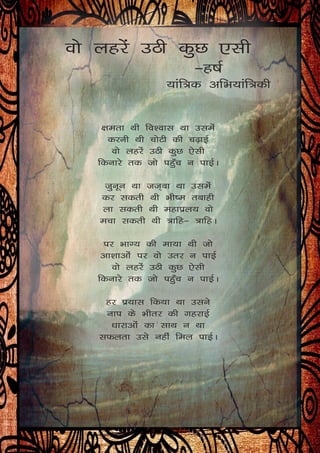 वो लहरें उठी कुछ एसी
-हर्ष
यांत्रिक अभियांत्रिकी
क्षमता थी विश्वास था उसमें
करनी थी चोटी की चढ़ाई
वो लहरें उठी कुछ ऐसी
किनारे तक जो पहुँच न पाई।
जुनून था जज्बा था उसमें
कर सकती थी भीष्म तबाही
ला सकती थी महाप्रलय वो
मचा सकती थी त्राहि- त्राहि।
पर भाग्य की माया थी जो
आशाओं पर वो उतर न पाई
वो लहरें उठी कुछ ऐसी
किनारे तक जो पहुँच न पाई।
हर प्रयास किया था उसने
नाप के भीतर की गहराई
धाराओं का साथ न था
सफलता उसे नहीं मिल पाई।